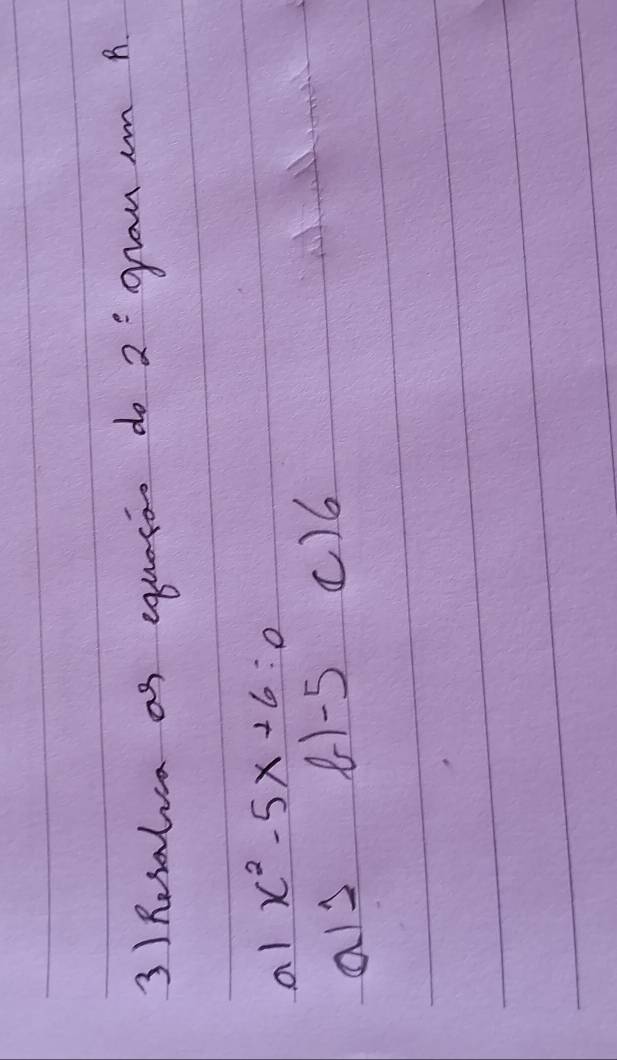 3) Resolva as equação do 2º grau em R.
a) x² - 5x + 6 = 0
a) 1 b) - 5 c) 6